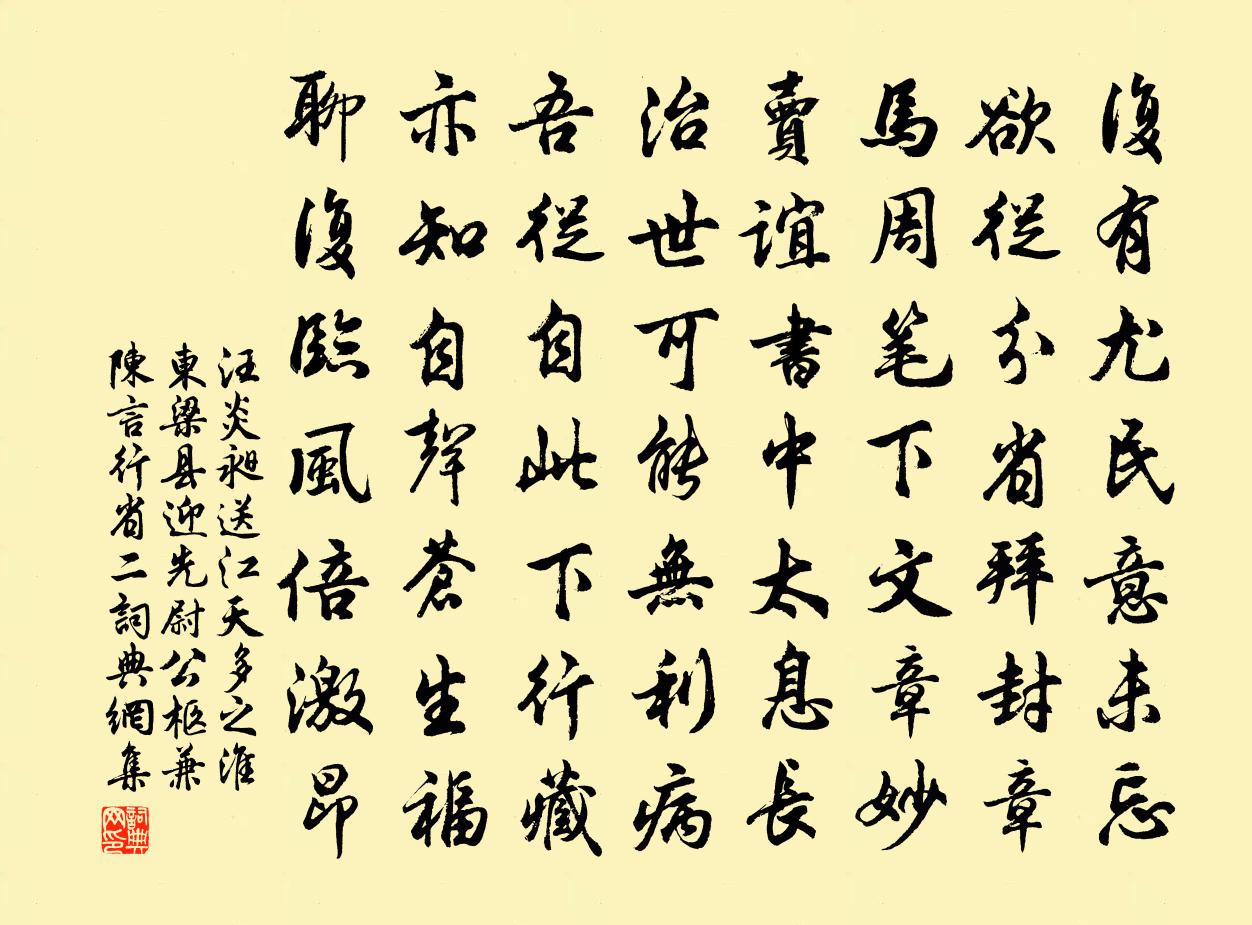 復有尤民意未忘
欲從分省拜封章
馬周笔下文章妙
賣誼書中太息長
治世可能無利病
吾從自此下行藏
亦知自聲蒼生福
聊復臨風倍激昂
汪炎昶送江天多之淮
東梁县迎先尉公柩兼
陳言行省二詞典網集
詞典
网印